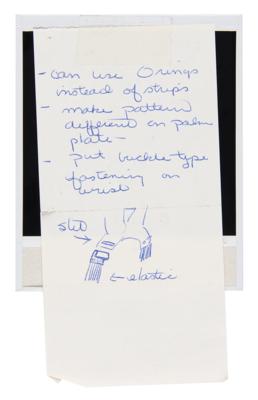 - can use O rings
instead of strips
- make pattern
different on palm
plate -
- put buckle type
fastening on
wrist
slit →
← elastic